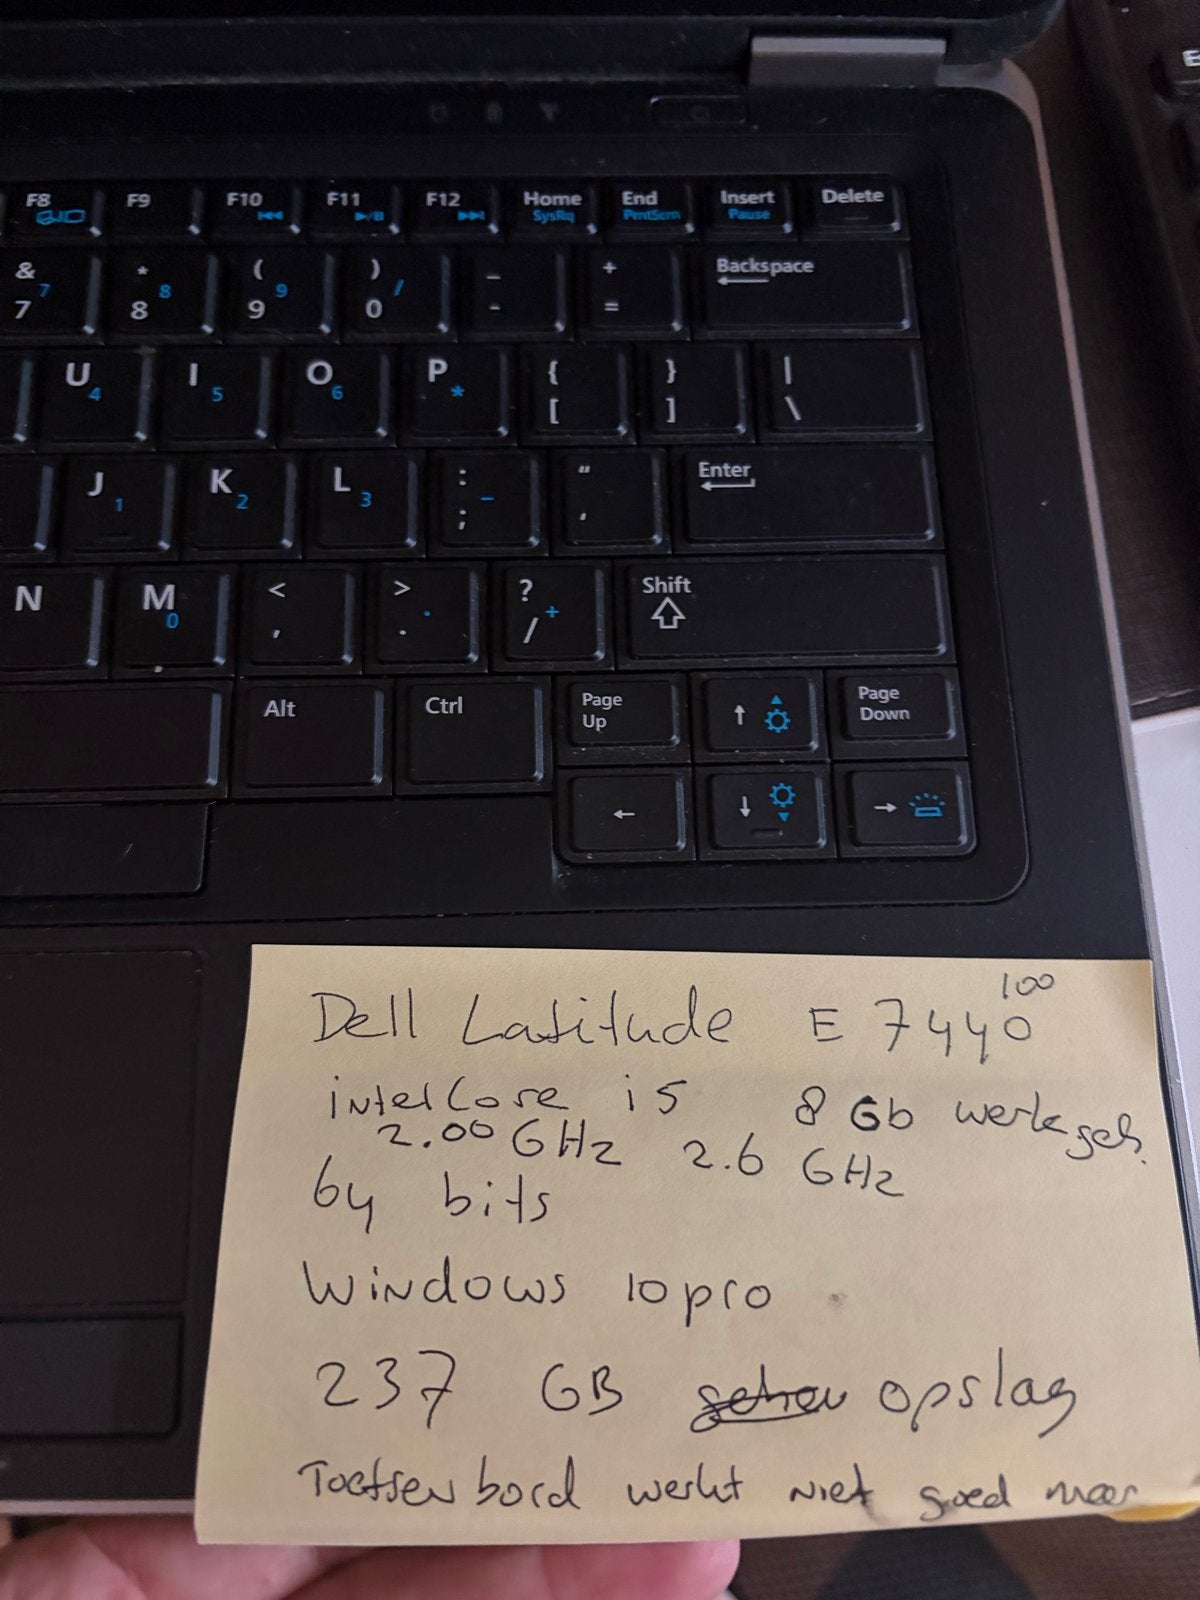 F8 F9 F10 F11 F12 Home End Insert Delete
SysRq PrntScrn Pause
& 7 7 * 8 8 ( 9 9 ) 0 / _ - + = Backspace
U 4 I 5 O 6 P * { [ } ] | \
J 1 K 2 L 3 : ; - " ' Enter
N M 0 < , > . . ? / + Shift
Alt Ctrl Page Up Page Down
100
Dell Latitude E 7440
intel Core i5 8 Gb werkgeh.
2.00 GHz 2.6 GHz
64 bits
Windows 10 pro
237 GB opslag
Toetsenbord werkt niet goed meer